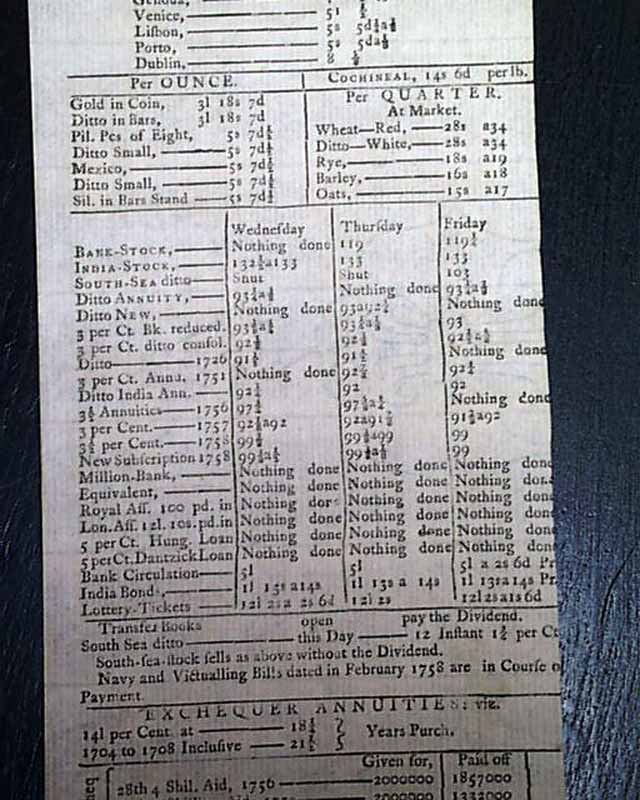 Genoua,
Venice, 51
Lisbon, 5s 5d¼a⅛
Porto, 5s 5da⅛
Dublin, 8
Per OUNCE.
Gold in Coin, 3l 18s 7d
Ditto in Bars, 3l 18s 7d
Pil. Pcs of Eight, 5s 7d½
Ditto Small, 5s 7d½
Mexico, 5s 7d½
Ditto Small, 5s 7d½
Sil. in Bars Stand 5s 7d½
COCHINEAL, 14s 6d per lb.
Per QUARTER.
At Market.
Wheat—Red, 28s a34
Ditto—White, 28s a34
Rye, 18s a19
Barley, 16s a18
Oats, 15s a17
Wedneſday Thurſday Friday
BANK-STOCK, Nothing done 119 119¼
INDIA-STOCK, 132½a133 133 133
SOUTH-SEA ditto Shut Shut 103
Ditto ANNUITY, 93¼a⅛ Nothing done 93¼a⅛
Ditto NEW, Nothing done 93a92¾ Nothing done
3 per Ct. Bk. reduced. 93 93
3 per Ct. ditto conſol. 92 92 92
Ditto 1726 91 91 Nothing done
3 per Ct. Ann. 1751 Nothing done 92 92
Ditto India Ann. 92 92 92
3½ Annuities 1756 97 97 Nothing done
3 per Cent. 1757 92½a92 92a91 91¾a92
3½ per Cent. 1758 99 99 a99 99
New Subſcription 1758 99 99 99
Million-Bank, Nothing done Nothing done Nothing done
Equivalent, Nothing done Nothing done Nothing done
Royal Aſſ. 100 pd. in Nothing done Nothing done Nothing done
Lon. Aſſ. 12l. 10s. pd. in Nothing done Nothing done Nothing done
5 per Ct. Hung. Loan Nothing done Nothing done Nothing done
5 per Ct. Dantzick Loan Nothing done Nothing done Nothing done
Bank Circulation 5l 5l 5l a 2s 6d Pr
India Bonds, 1l 13s a14s 1l 13s a 14s 1l 13s a 14s Pr.
Lottery-Tickets 12l 2s a 2s 6d 12l 2s 12l 2s a1s 6d
Transfer Books open pay the Dividend.
South Sea ditto this Day 12 Inſtant 1½ per Ct
South-ſea-ſtock ſells as above without the Dividend.
Navy and Victualling Bills dated in February 1758 are in Courſe o
Payment.
EXCHEQUER ANNUITIES: viz.
14l per Cent. at 18 Years Purch.
1704 to 1708 Incluſive 21
Given for, Paid off
28th 4 Shil. Aid, 1756 2000000 1857000